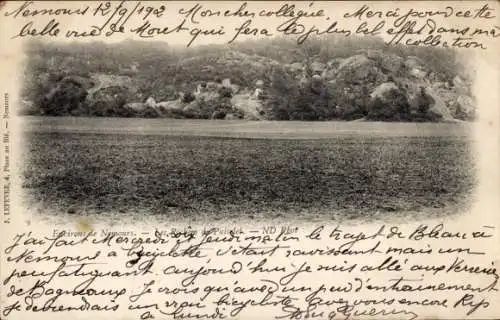 Nemours 12/9/902 Mon cher collègue, Merci pour cette
belle vue de Moret qui fera le plus bel effet dans ma
collection
J. LEFEVER, 4, Place au Blé. — Nemours
Environs de Nemours. — Les Rochers de Puiselet. — ND Phot
J'ai fait Mercredi et Jeudi matin le trajet de Bleau à
Nemours à bicyclette, c'était ravissant mais un
peu fatiguant. Aujourd'hui je suis allé aux Verreries
de Bagneaux. Je crois qu'avec un peu d'entraînement
je deviendrais un vrai bicycliste. Avez vous encore Rep
à lundi